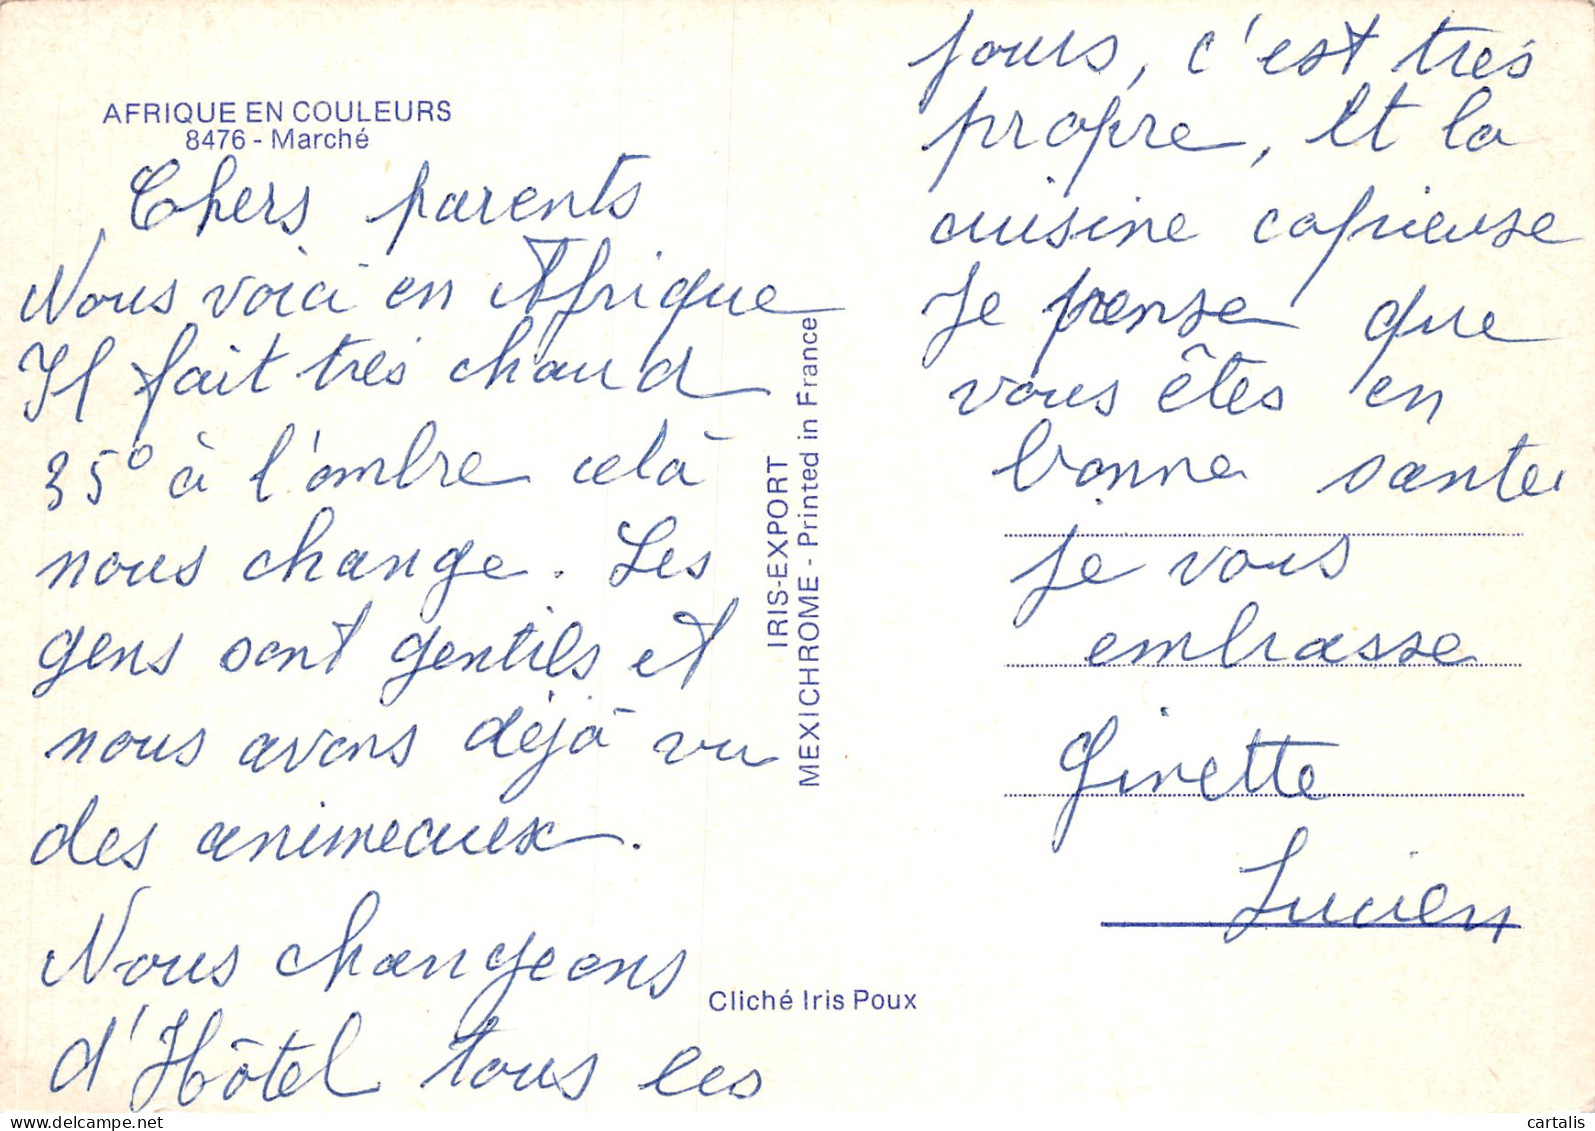 AFRIQUE EN COULEURS
8476 - Marché
Chers parents
Nous voici en Afrique
Il fait très chaud
35° à l'ombre celà
nous change. Les
gens sont gentils et
nous avons déjà vu
des animeaux.
Nous changeons
d'Hôtel tous les
jours, c'est très
propre, et la
cuisine copieuse
Je pense que
vous êtes en
bonne santé
je vous
embrasse
Ginette
Lucien
IRIS-EXPORT
MEXICHROME - Printed in France
Cliché Iris Poux
cartalis